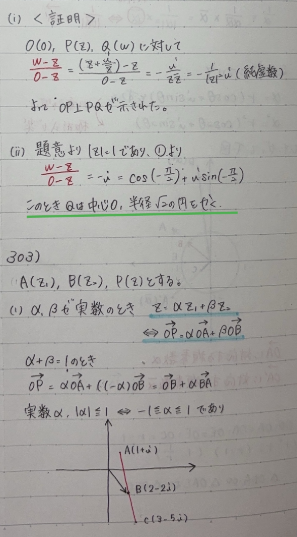 (i) <証明>
O(0), P(z), Q(w) に対して
w-z/0-z = (z+i/z̄)-z/0-z = -i/zz̄ = -1/|z|²・i (純虚数)
よって OP⊥PQ が示された。
(ii) 題意より |z|=1 であり、①より
w-z/0-z = -i = cos(-π/2)+i sin(-π/2)
このとき Qは中心O, 半径√2の円をかく。
303)
A(z₁), B(z₂), P(z)とする。
(i) α, βが実数のとき z=αz₁+βz₂
⇔ OP=αOA+βOB
α+β=1のとき
OP=αOA+(1-α)OB=OB+αBA
実数α, |α|≦1 ⇔ -1≦α≦1 であり
A(1+i)
B(2-2i)
C(3-5i)